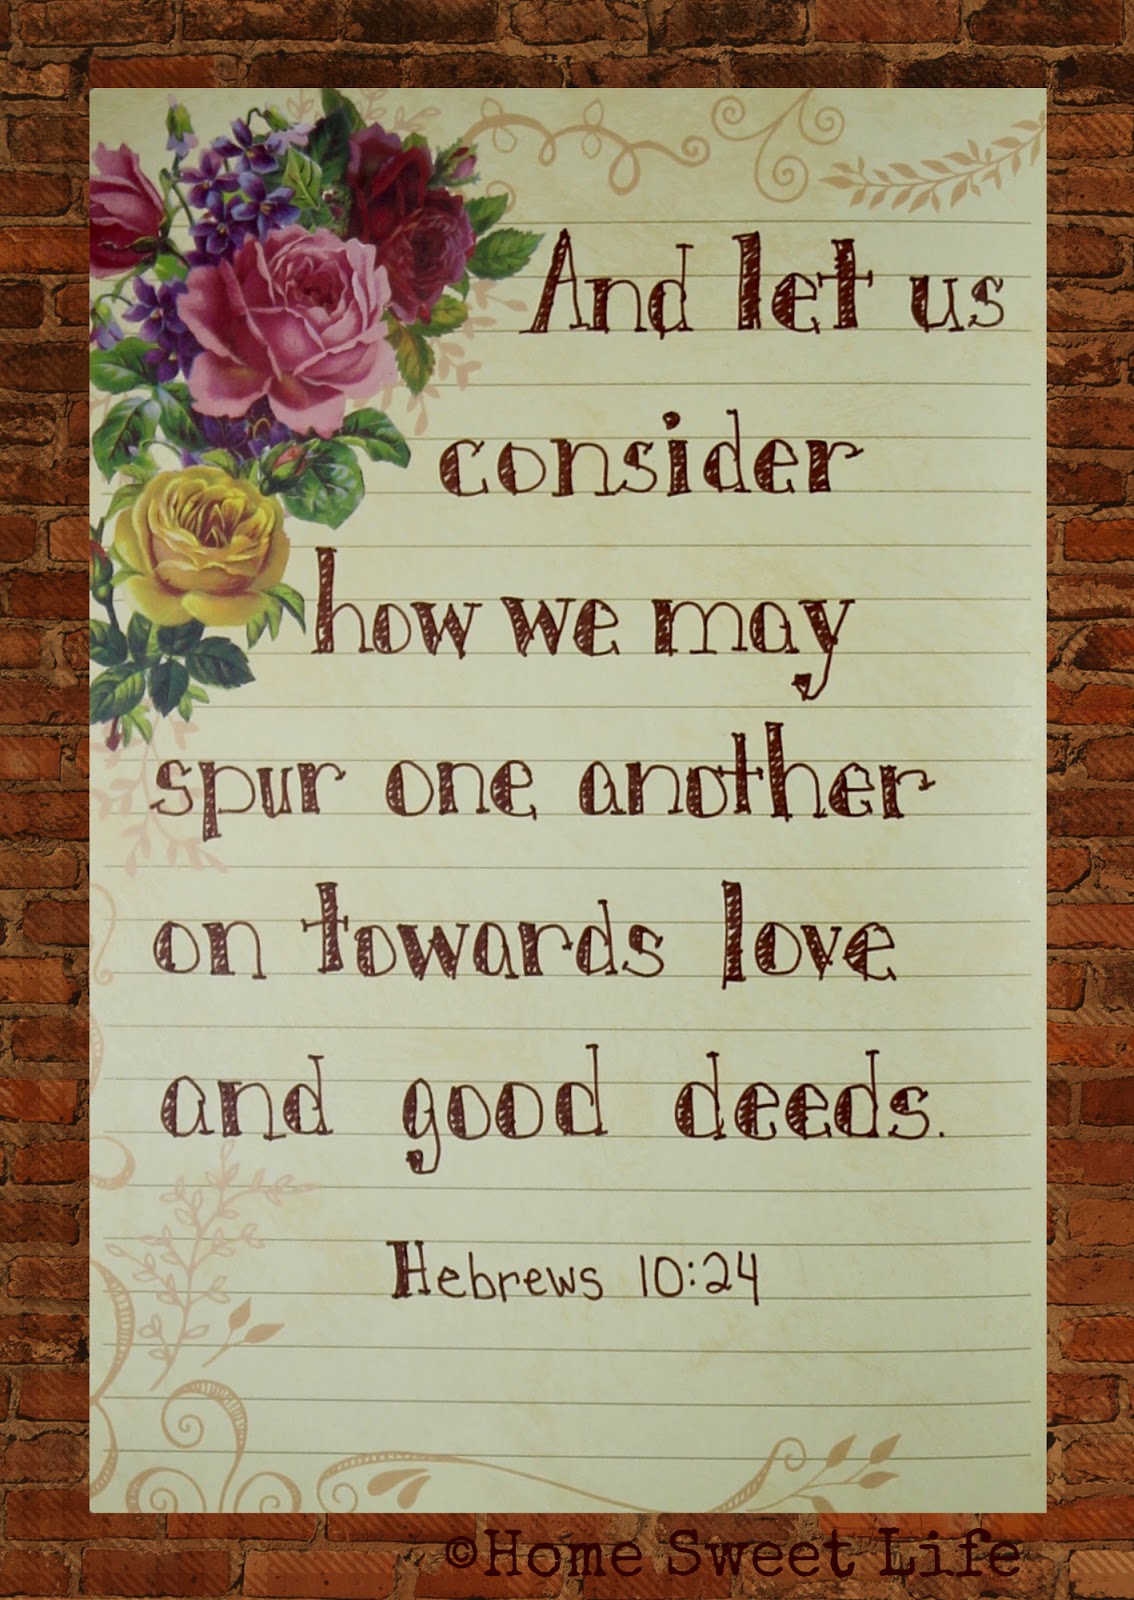 And let us
consider
how we may
spur one another
on towards love
and good deeds.
Hebrews 10:24
©Home Sweet Life